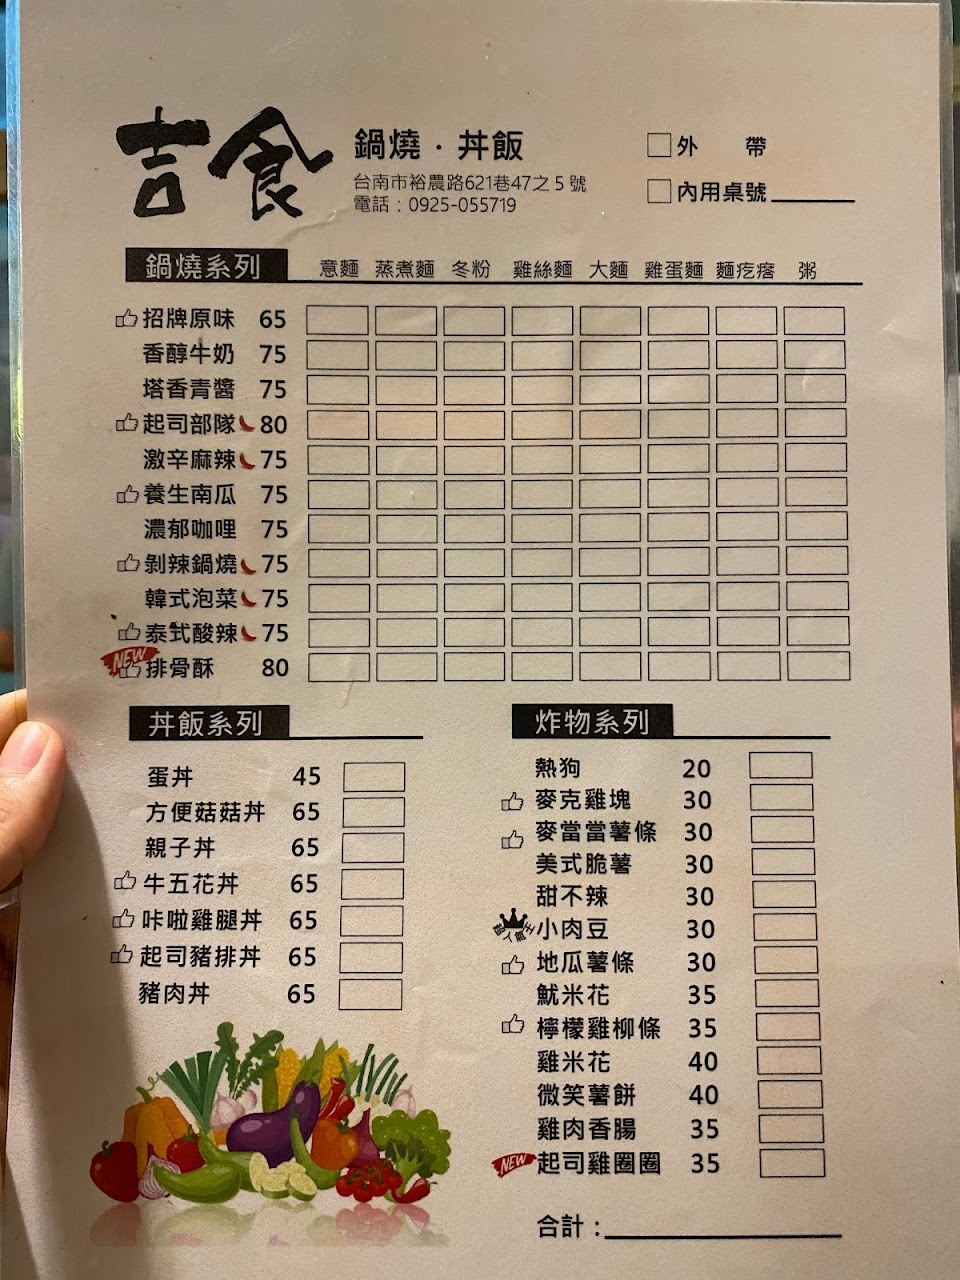 吉食
鍋燒．丼飯
台南市裕農路621巷47之5號
電話：0925-055719
外 帶
內用桌號
鍋燒系列 意麵 蒸煮麵 冬粉 雞絲麵 大麵 雞蛋麵 麵疙瘩 粥
招牌原味 65
香醇牛奶 75
塔香青醬 75
起司部隊 80
激辛麻辣 75
養生南瓜 75
濃郁咖哩 75
剝辣鍋燒 75
韓式泡菜 75
泰式酸辣 75
NEW 排骨酥 80
丼飯系列
蛋丼 45
方便菇菇丼 65
親子丼 65
牛五花丼 65
咔啦雞腿丼 65
起司豬排丼 65
豬肉丼 65
炸物系列
熱狗 20
麥克雞塊 30
麥當當薯條 30
美式脆薯 30
甜不辣 30
小肉豆 30
地瓜薯條 30
魷米花 35
檸檬雞柳條 35
雞米花 40
微笑薯餅 40
雞肉香腸 35
NEW 起司雞圈圈 35
合計：